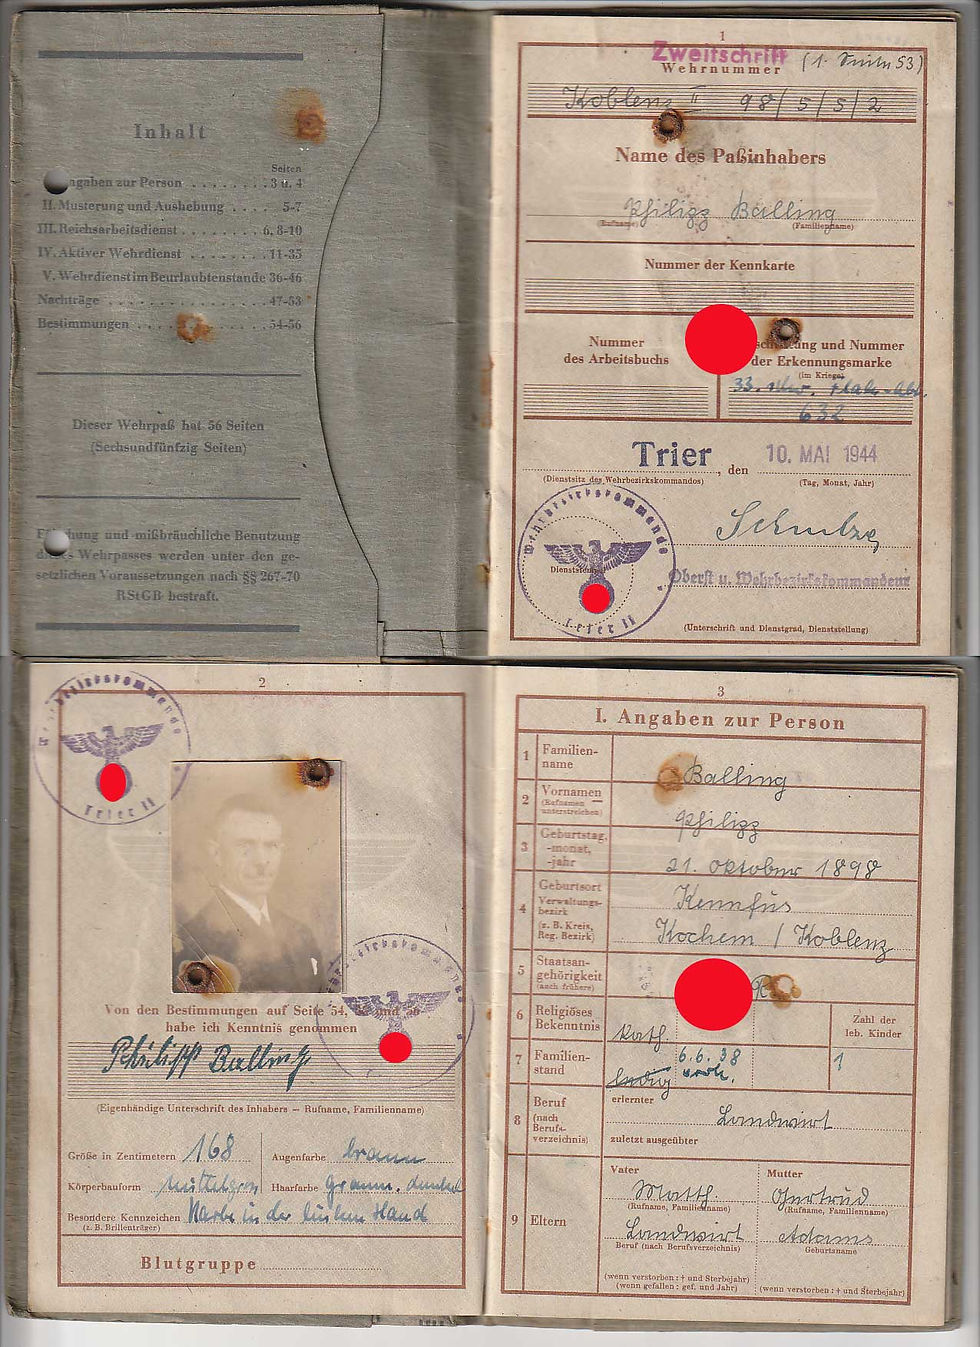 Inhalt
Seiten
ngaben zur Person . . . . . . . 3 u. 4
II. Musterung und Aushebung . . . . 5-7
III. Reichsarbeitsdienst . . . . . . . . 6, 8-10
IV. Aktiver Wehrdienst . . . . . . . . 11-35
V. Wehrdienst im Beurlaubtenstande 36-46
Nachträge . . . . . . . . . . . . . . 47-53
Bestimmungen . . . . . . . . . . . 54-56
Dieser Wehrpaß hat 56 Seiten
(Sechsundfünfzig Seiten)
hung und mißbräuchliche Benutzung
Wehrpasses werden unter den ge-
setzlichen Voraussetzungen nach §§ 267-70
RStGB bestraft.
1
Zweitschrift
(1. Seite 53)
Wehrnummer
Koblenz II 98/5/5/2
Name des Paßinhabers
Philipp Balling
(Rufname) (Familienname)
Nummer der Kennkarte
Nummer
des Arbeitsbuchs
und Nummer
der Erkennungsmarke
(im Kriege)
33. Flak-Abt.
632
Trier, den 10. MAI 1944
(Dienstsitz des Wehrbezirkskommandos) (Tag, Monat, Jahr)
Wehrbezirkskommando
Trier II
Schulze
Oberst u. Wehrbezirkskommandeur
(Unterschrift und Dienstgrad, Dienststellung)
2
Wehrbezirkskommando
Trier II
Von den Bestimmungen auf Seite 54,
habe ich Kenntnis genommen
Philipp Balling
(Eigenhändige Unterschrift des Inhabers — Rufname, Familienname)
Größe in Zentimetern 168 Augenfarbe braun
Körperbauform mittelgroß Haarfarbe
Besondere Kennzeichen Narbe in der linken Hand
(z. B. Brillenträger)
Blutgruppe
3
I. Angaben zur Person
1 Familien-
name
Balling
2 Vornamen
(Rufnamen
unterstreichen)
Philipp
3 Geburtstag,
-monat,
-jahr
21. Oktober 1898
4 Geburtsort
Verwaltungs-
bezirk
(z. B. Kreis,
Reg. Bezirk)
Kennfus
Kochem / Koblenz
5 Staatsan-
gehörigkeit
(auch frühere)
6 Religiöses
Bekenntnis
kath.
Zahl der
leb. Kinder
7 Familien-
stand
ledig
6.6.38
verh.
1
8 Beruf
(nach
Berufs-
verzeichnis)
erlernter
Landwirt
zuletzt ausgeübter
9 Eltern
Vater Mutter
Matth. Gertrud
(Rufname, Familienname) (Rufname, Familienname)
Landwirt Adams
Beruf (nach Berufsverzeichnis) Geburtsname
(wenn verstorben: † und Sterbejahr)
(wenn gefallen: gef. und Jahr)
(wenn verstorben: † und Sterbejahr)